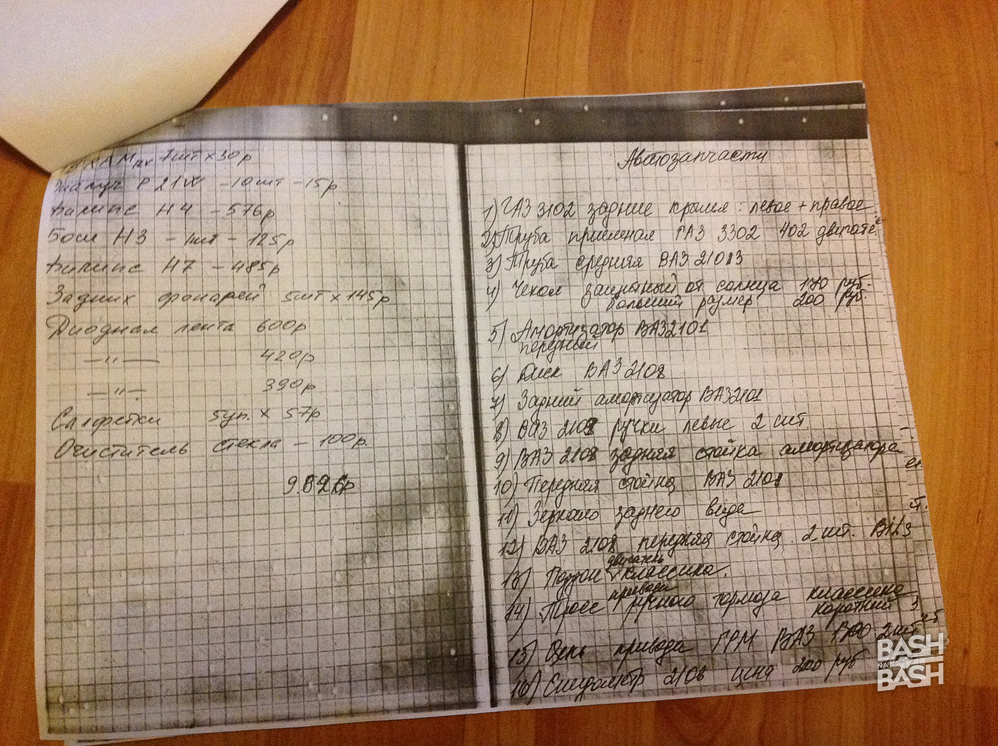 7шт х 30р
P21W - 10шт - 15р
Филипс H4 - 576р
Бош H3 - 1шт - 125р
Филипс H7 - 485р
Задних фонарей 5шт х 145р
Диодная лента 600р
-"- 420р
-"- 390р
Салфетки 5уп. х 57р
Очиститель стекла - 100р.
9826р
Автозапчасти
1) ГАЗ 3102 задние крылья: левое + правое
2) Труба приемная ГАЗ 3302 402
3) Труба средняя ВАЗ 21083
4) Чехол защитный от солнца 170 руб.
больший размер 200 руб.
5) Амортизатор ВАЗ 2101
передний
6) Диск ВАЗ 2108
7) Задний амортизатор ВАЗ 2101
8) ВАЗ 2108 ручки левые 2 шт
9) ВАЗ 2108 задняя стойка амортизатора
10) Передняя стойка ВАЗ 2108
11) Зеркало заднего вида
12) ВАЗ 2108 передняя стойка 2 шт.
13) двигатель классика.
14) Трос привода ручного тормоза классика
короткий
15) Цепь привода ГРМ ВАЗ 2 шт
16) Спидометр 2106 цена 200 руб
BASH
NA
BASH